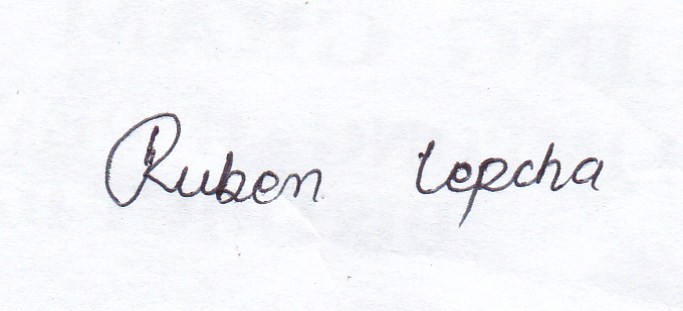 Ruben Lepcha